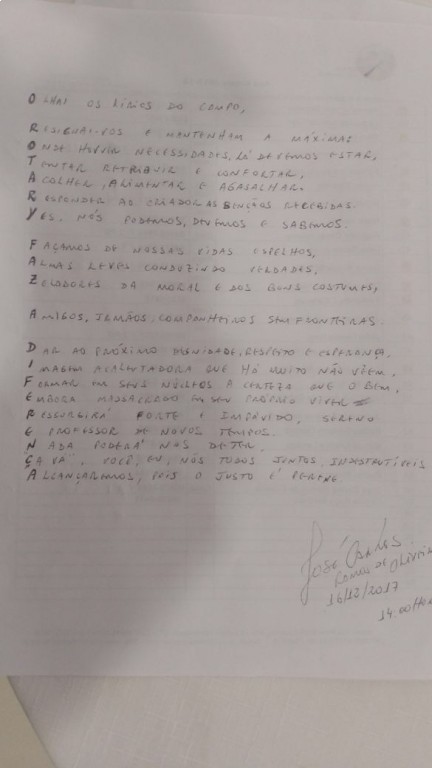 OLHAI OS LÍRIOS DO CAMPO,
RESIGNAI-VOS E MANTENHAM A MÁXIMA:
ONDE HOUVER NECESSIDADES, LÁ DEVEMOS ESTAR,
TENTAR RETRIBUIR E CONFORTAR,
ACOLHER, ALIMENTAR E AGASALHAR.
RESPONDER AO CRIADOR AS BENÇÃOS RECEBIDAS.
YES, NÓS PODEMOS, DEVEMOS E SABEMOS.
FAÇAMOS DE NOSSAS VIDAS ESPELHOS,
ALMAS LEVES CONDUZINDO VERDADES,
ZELADORES DA MORAL E DOS BONS COSTUMES,
AMIGOS, IRMÃOS, COMPANHEIROS SEM FRONTEIRAS.
DAR AO PRÓXIMO DIGNIDADE, RESPEITO E ESPERANÇA,
IMAGEM ACALENTADORA QUE HÁ MUITO NÃO VÊEM,
FIRMAR EM SEUS NÚCLEOS A CERTEZA QUE O BEM,
EMBORA MASSACRADO EM SEU PRÓPRIO VIVER
RESSURGIRÁ FORTE E IMPÁVIDO, SERENO
E PROFESSOR DE NOVOS TEMPOS.
NADA PODERÁ NOS DETER.
ÇA VÁ", VOCÊ, EU, NÓS TODOS JUNTOS, INDESTRUTÍVEIS
ALCANÇAREMOS, POIS O JUSTO É PERENE
JOSÉ CARLOS
RAMOS DE OLIVEIRA
16/12/2017
14:00